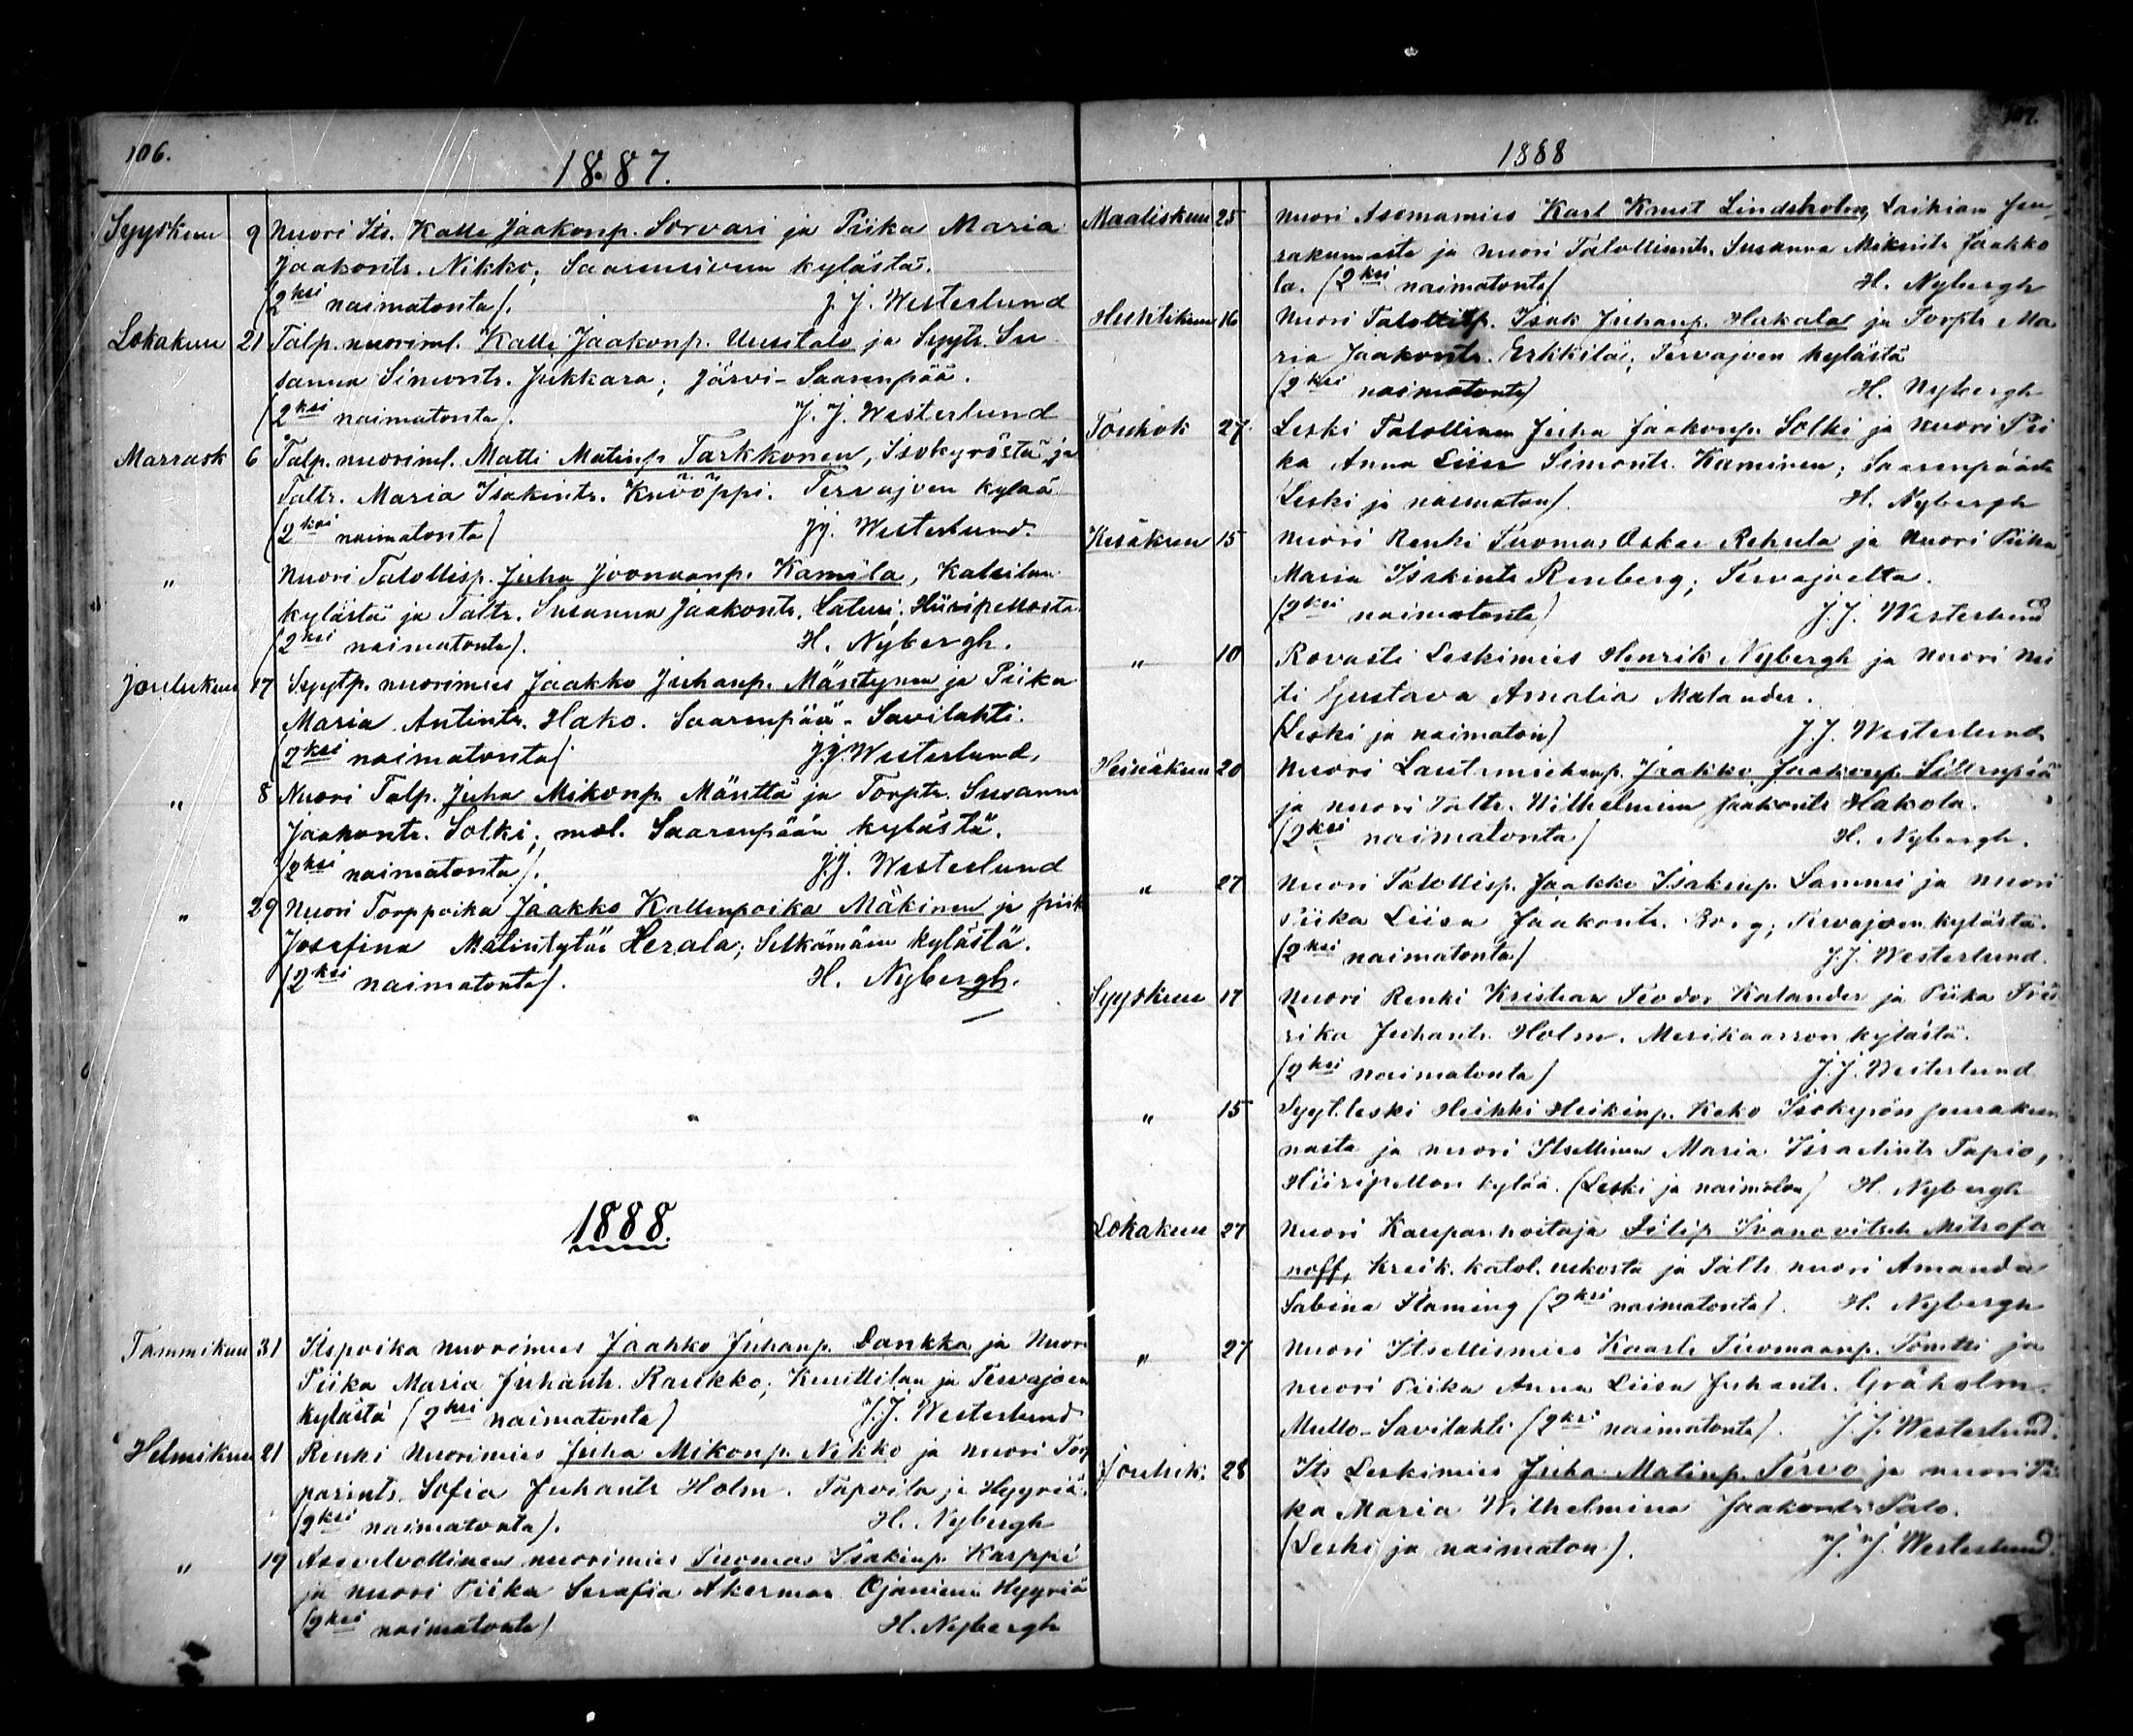 106.
1887.
Syyskuu 9 Nuori Its. Kalle Jaakonp. Sorvari ja Piika Maria
Jaakontr. Nikko; Saarensivun kylästä.
(2ksi naimatonta). J. J. Westerlund
Lokakuu 21 Talp. nuoriml. Kalle Jaakonp. Uusitalo ja Syytr. Su
sanna Simontr. Jukkara; Järvi-Saarenpää.
(2ksi naimatonta). J. J. Westerlund
Marrask 6 Talp. nuoriml. Matti Matinp Tarkkonen, Isokyröstä ja
Taltr. Maria Isakintr. Knööppi. Tervajoen kylää
(2ksi naimatonta) JJ. Westerlund.
" Nuori Talollisp. Juha Joonaanp. Kamila, Kalsilan
kylästä ja Taltr. Susanna Jaakontr. Laturi; Hiiripellosta
(2ksi naimatonta). H. Nybergh.
Joulukuu 17 Syytp. nuorimies Jaakko Juhanp. Mäntynen ja Piika
Maria Antintr. Hako. Saarenpää-Savilahti.
(2ksi naimatonta) J.J. Westerlund,
" 8 Nuori Talp. Juha Mikonp. Mänttä ja Torptr. Susanna
Jaakontr. Solki; mol. Saarenpään kylästä.
(2ksi naimatonta). J.J. Westerlund
" 29 Nuori Torppoika Jaakko Kallenpoika Mäkinen ja piik
Josefina Matintytär Herala; Selkämäen kylästä.
(2ksi naimatonta). H. Nybergh.
1888.
Tammikuu 31 Itspoika nuorimies Jaakko Juhanp. Dankka ja Nuori
Piika Maria Juhantr. Raukko; Kuuttilan ja Tervajoen
kylästä (2ksi naimatonta) J.J. Westerlund
Helmikuu 21 Renki Nuorimies Juha Mikonp. Nikko ja nuori Torp
parintr. Sofia Juhantr Holm. Tapoila ja Hyyriä.
(2ksi naimatonta). H. Nybergh
" 19 Asevelvollinen nuorimies Tuomas Isakinp. Karppi
ja nuori Piika Serafia Åkerman Ojaniemi Hyyriä
(2ksi naimatonta) H. Nybergh
107.
1888
Maaliskuu 25 Nuori Asemamies Karl Knut Lindsholm, Laihian seu
rakunnasta ja nuori Talollisntr. Susanna Mikintr Jaakko
la. (2ksi naimatonta) H. Nybergh
Huhtikuu 16 Nuori Talollisp. Isak Juhanp. Hakala ja Torptr Ma
ria Jaakontr. Erkkilä; Tervajoen kylästä
(2ksi naimatonta) H. Nybergh
Toukok 27 Leski Talollinen Juha Jaakonp. Solki ja nuori Pii
ka Anna Liisa Simontr. Kaminen; Saarenpäästä
(Leski ja naimaton). H. Nybergh
Kesäkuu 15 Nuori Renki Tuomas Oskar Rehula ja Nuori Piika
Maria Isakintr Renberg; Tervajoelta.
(2ksi naimatonta) J.J. Westerlund
" 10 Rovasti Leskimies Henrik Nybergh ja Nuori nei
ti Gustava Amalia Malander.
(Leski ja naimaton) J.J. Westerlund
Heinäkuu 20 Nuori Lautamiehenp. Jaakko Jaakonp. Sillenpää
ja nuori Taltr. Wilhelmina Jaakontr Hakola.
(2ksi naimatonta) H. Nybergh.
" 27 Nuori Talollisp. Jaakko Isakinp. Sammi ja nuori
Piika Liisa Jaakontr. Borg; Tervajoen kylästä.
(2ksi naimatonta) J.J. Westerlund.
Syyskuu 17 Nuori Renki Kristian Teodor Kalander ja Piika Fred
rika Juhantr. Holm. Merikaarron kylästä.
(2ksi naimatonta) J.J. Westerlund
" 15 Syyt. leski Heikki Heikinp. Keko Isokyrön seurakun
nasta ja nuori Itsellinen Maria Israelintr Tapio,
Hiiripellon kylää. (Leski ja naimaton) H. Nybergh
Lokakuu 27 Nuori Kaupanhoitaja Filip Ivanovitsch Mitrofa
noff, Kreik. katol. uskosta ja Taltr. nuori Amanda
Sabina Flaming (2ksi naimatonta). H. Nybergh
" 27 Nuori Itsellismies Kaarle Tuomaanp. Tomtti ja
nuori Piika Anna Liisa Juhantr. Gråholm
Mullo-Savilahti (2ksi naimatonta). J.J. Westerlund.
Jouluk. 28 Its Leskimies Juha Matinp. Tervo ja nuori Pii
ka Maria Wilhelmina Jaakontr. Palo.
(Leski ja naimaton). J. J. Westerlund.